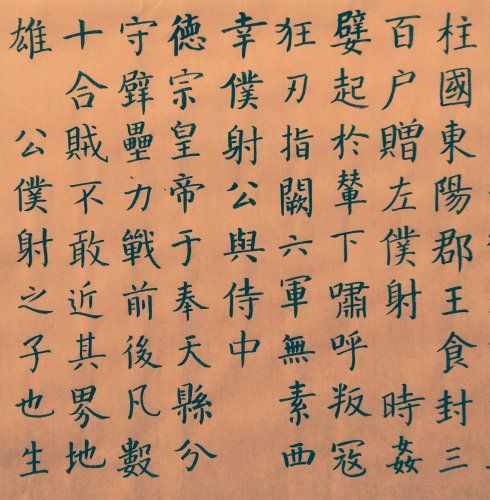 柱國東陽郡王食封三
百户贈左僕射 時姦
嬖起於輦下嘯呼叛寇
狂刃指闕六軍無素西
幸僕射公與侍中
德宗皇帝于奉天縣分
守壁壘力戰前後凡數
十合賊不敢近其界地
雄 公僕射之子也生